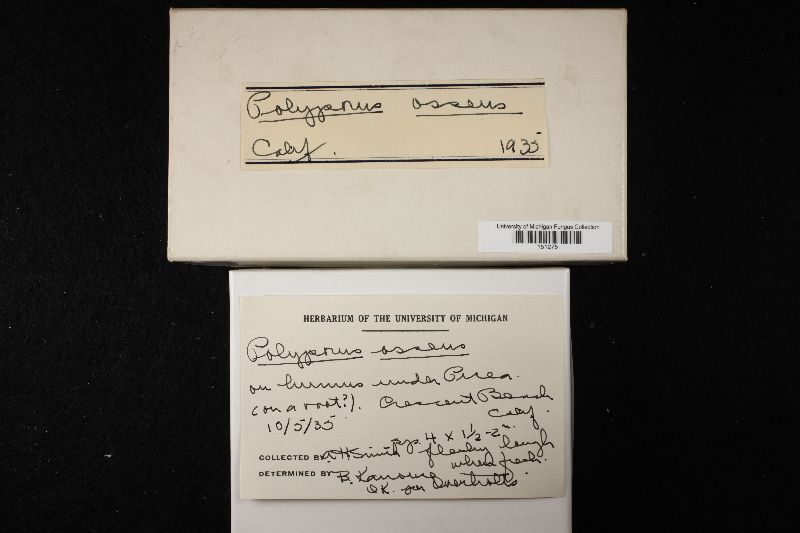 Polyporus osseus
Calif. 1935
University of Michigan Fungus Collection
151275
HERBARIUM OF THE UNIVERSITY OF MICHIGAN
Polyporus osseus
on humus under Picea.
(on a root?). Crescent Beach
Calif.
10/5/35
sp. 4 x 1½-2".
COLLECTED BY A.H. Smith fleshy tough
when fresh.
DETERMINED BY B. Kanouse
O.K. fr Overholts